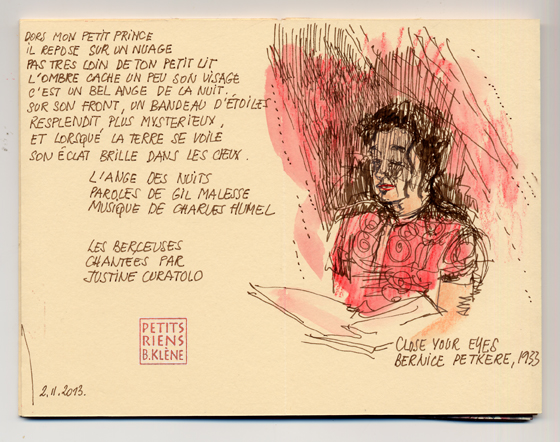 DORS MON PETIT PRINCE
IL REPOSE SUR UN NUAGE
PAS TRES LOIN DE TON PETIT LIT
L'OMBRE CACHE UN PEU SON VISAGE
C'EST UN BEL ANGE DE LA NUIT.
SUR SON FRONT, UN BANDEAU D'ÉTOILES
RESPLENDIT PLUS MYSTERIEUX,
ET LORSQUE LA TERRE SE VOILE
SON ÉCLAT BRILLE DANS LES CIEUX.
L'ANGE DES NUITS
PAROLES DE GIL MALESSE
MUSIQUE DE CHARLES HUMEL
LES BERCEUSES
CHANTEES PAR
JUSTINE CURATOLO
PETITS
RIENS
B.KLÈNE
2.11.2013.
CLOSE YOUR EYES
BERNICE PETKERE, 1933